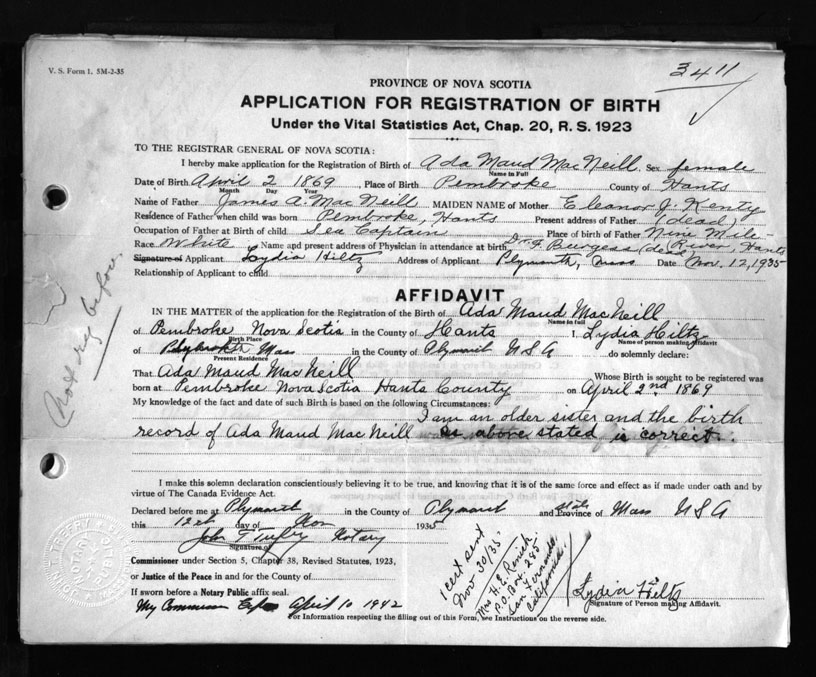 V. S. Form 1. 5M-2-35
3411
PROVINCE OF NOVA SCOTIA
APPLICATION FOR REGISTRATION OF BIRTH
Under the Vital Statistics Act, Chap. 20, R. S. 1923
TO THE REGISTRAR GENERAL OF NOVA SCOTIA:
I hereby make application for the Registration of Birth of Ada Maud MacNeill. Sex female
Name in Full
Date of Birth April 2 1869, Place of Birth Pembroke County of Hants
Month Day Year
Name of Father James A. MacNeill MAIDEN NAME of Mother Eleanor J. Kenty
Residence of Father when child was born Pembroke, Hants Present address of Father (dead)
Occupation of Father at Birth of child Sea Captain Place of birth of Father Nine Mile-
River, Hants
Race White Name and present address of Physician in attendance at birth Dr. F. Burgess (dead)
Signature of Applicant Lydia Hiltz Address of Applicant Plymouth, Mass Date Nov. 12, 1935
Relationship of Applicant to child
AFFIDAVIT
IN THE MATTER of the application for the Registration of the Birth of Ada Maud MacNeill
Name in full
of Pembroke Nova Scotia in the County of Hants I, Lydia Hiltz
Birth Place Name of person making Affidavit
of Mass in the County of Plymouth U S A do solemnly declare:
Present Residence
That Ada Maud MacNeill Whose Birth is sought to be registered was
born at Pembroke Nova Scotia Hants County on April 2nd 1869
My knowledge of the fact and date of such Birth is based on the following Circumstances:
I am an older sister and the birth
record of Ada Maud MacNeill as above stated is correct.
I make this solemn declaration conscientiously believing it to be true, and knowing that it is of the same force and effect as if made under oath and by
virtue of The Canada Evidence Act.
Declared before me at Plymouth in the County of Plymouth and Province of state Mass U S A
this 12th day of Nov 1935
John T Notary
Signature of
Commissioner under Section 5, Chapter 38, Revised Statutes, 1923,
or Justice of the Peace in and for the County of
If sworn before a Notary Public affix seal.
My Commission Expires April 10 1942
Lydia Hiltz
Signature of Person making Affidavit.
For Information respecting the filling out of this Form, see Instructions on the reverse side.
1 cert sent
Nov 30/35
Mrs H. E.
P.O. Box 285
San Fernando
California
Not reg before.